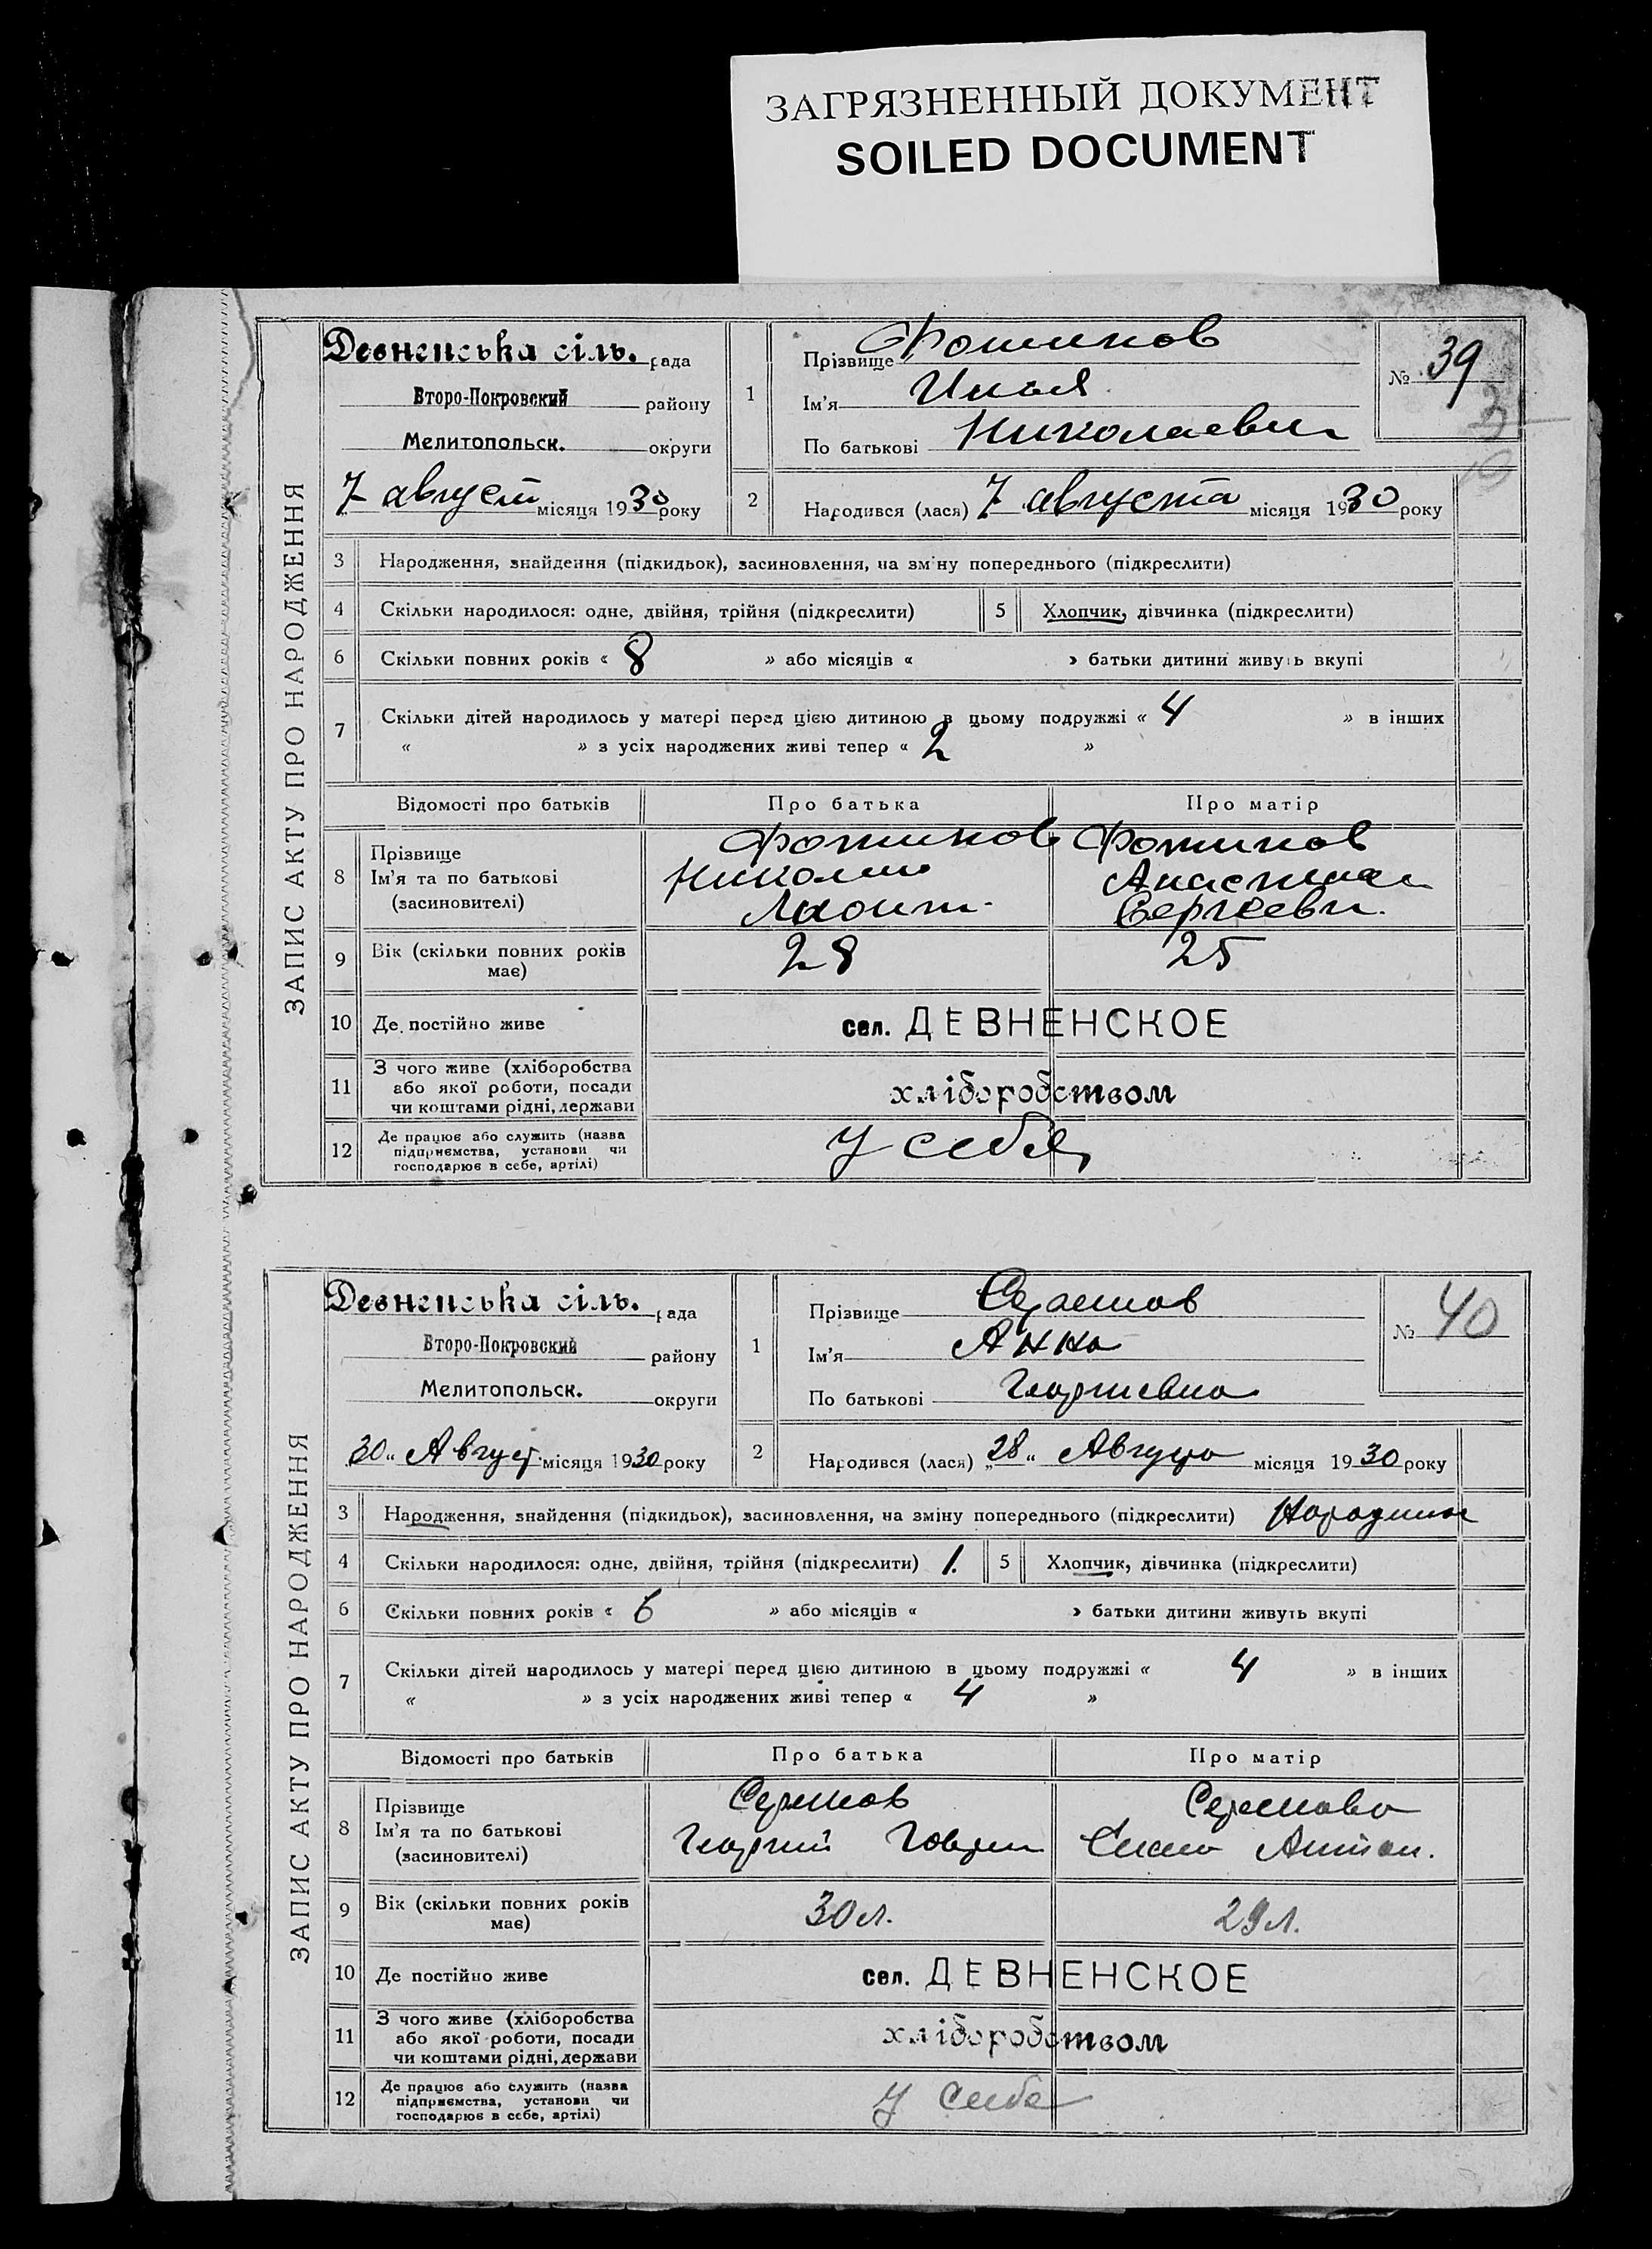 ЗАГРЯЗНЕННЫЙ ДОКУМЕНТ
SOILED DOCUMENT
ЗАПИС АКТУ ПРО НАРОДЖЕННЯ
Девненська сіль. рада
Второ-Покровский району
Мелитопольск. округи
7 август місяця 1930 року
1
Прізвище
Ім'я Илья
По батькові Николаевич
№ 39
2
Народився (лася) 7 августа місяця 1930 року
3 Народження, знайдення (підкидьок), засиновлення, на зміну попереднього (підкреслити)
4 Скільки народилося: одне, двійня, трійня (підкреслити) 5 Хлопчик, дівчинка (підкреслити)
6 Скільки повних років « 8 » або місяців « » батьки дитини живуть вкупі
7 Скільки дітей народилось у матері перед цією дитиною в цьому подружжі « 4 » в інших
« » з усіх народжених живі тепер « 2 »
Відомості про батьків Про батька Про матір
8 Прізвище
Ім'я та по батькові
(засиновителі)
Николай
Сергеевн.
9 Вік (скільки повних років має) 28 25
10 Де постійно живе сел. ДЕВНЕНСКОЕ
11 З чого живе (хліборобства
або якої роботи, посади
чи коштами рідні, держави
хліборобством
12 Де працює або служить (назва
підприємства, установи чи
господарює в себе, артілі)
У себя
ЗАПИС АКТУ ПРО НАРОДЖЕННЯ
Девненська сіль. рада
Второ-Покровский району
Мелитопольск. округи
30 " Август місяця 1930 року
1
Прізвище
Ім'я Анна
По батькові Георгиевна
№ 40
2
Народився (лася) „28 " Августа місяця 1930 року
3 Народження, знайдення (підкидьок), засиновлення, на зміну попереднього (підкреслити)
4 Скільки народилося: одне, двійня, трійня (підкреслити) 1. 5 Хлопчик, дівчинка (підкреслити)
6 Скільки повних років « 6 » або місяців « » батьки дитини живуть вкупі
7 Скільки дітей народилось у матері перед цією дитиною в цьому подружжі « 4 » в інших
« » з усіх народжених живі тепер « 4 »
Відомості про батьків Про батька Про матір
8 Прізвище
Ім'я та по батькові
(засиновителі)
Георгий
9 Вік (скільки повних років має) 30 л. 29 л.
10 Де постійно живе сел. ДЕВНЕНСКОЕ
11 З чого живе (хліборобства
або якої роботи, посади
чи коштами рідні, держави
хліборобством
12 Де працює або служить (назва
підприємства, установи чи
господарює в себе, артілі)
У себя